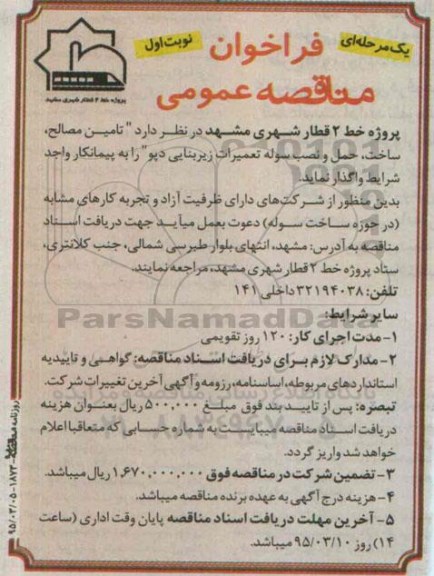 یک مرحله‌ای
نوبت اول
فراخوان
مناقصه عمومی
پروژه خط ۲ قطار شهری مشهد
پروژه خط ۲ قطار شهری مشهد در نظر دارد "تامین مصالح،
ساخت، حمل و نصب سوله تعمیرات زیربنایی دپو" را به پیمانکار واجد
شرایط واگذار نماید.
بدین منظور از شرکت‌های دارای ظرفیت آزاد و تجربه کارهای مشابه
(در حوزه ساخت سوله) دعوت بعمل میآید جهت دریافت اسناد
مناقصه به آدرس: مشهد، انتهای بلوار طبرسی شمالی، جنب کلانتری،
ستاد پروژه خط ۲ قطار شهری مشهد، مراجعه نمایند.
تلفن: ۳۲۱۹۴۰۳۸ داخلی ۱۴۱
سایر شرایط:
۱- مدت اجرای کار: ۱۲۰ روز تقویمی
۲- مدارک لازم برای دریافت اسناد مناقصه: گواهی و تاییدیه
استانداردهای مربوطه، اساسنامه، رزومه و آگهی آخرین تغییرات شرکت.
تبصره: پس از تایید بند فوق مبلغ ۵۰۰,۰۰۰ ریال بعنوان هزینه
دریافت اسناد مناقصه میبایست به شماره حسابی که متعاقبا اعلام
خواهد شد واریز گردد.
۳- تضمین شرکت در مناقصه فوق ۱,۶۷۰,۰۰۰,۰۰۰ ریال میباشد.
۴- هزینه درج آگهی به عهده برنده مناقصه میباشد.
۵- آخرین مهلت دریافت اسناد مناقصه پایان وقت اداری (ساعت
۱۴) روز ۹۵/۰۳/۱۰ میباشد.
ParsNamadData
روزنامه مناقصه ۱۸۷۳-۹۵/۰۳/۰۵